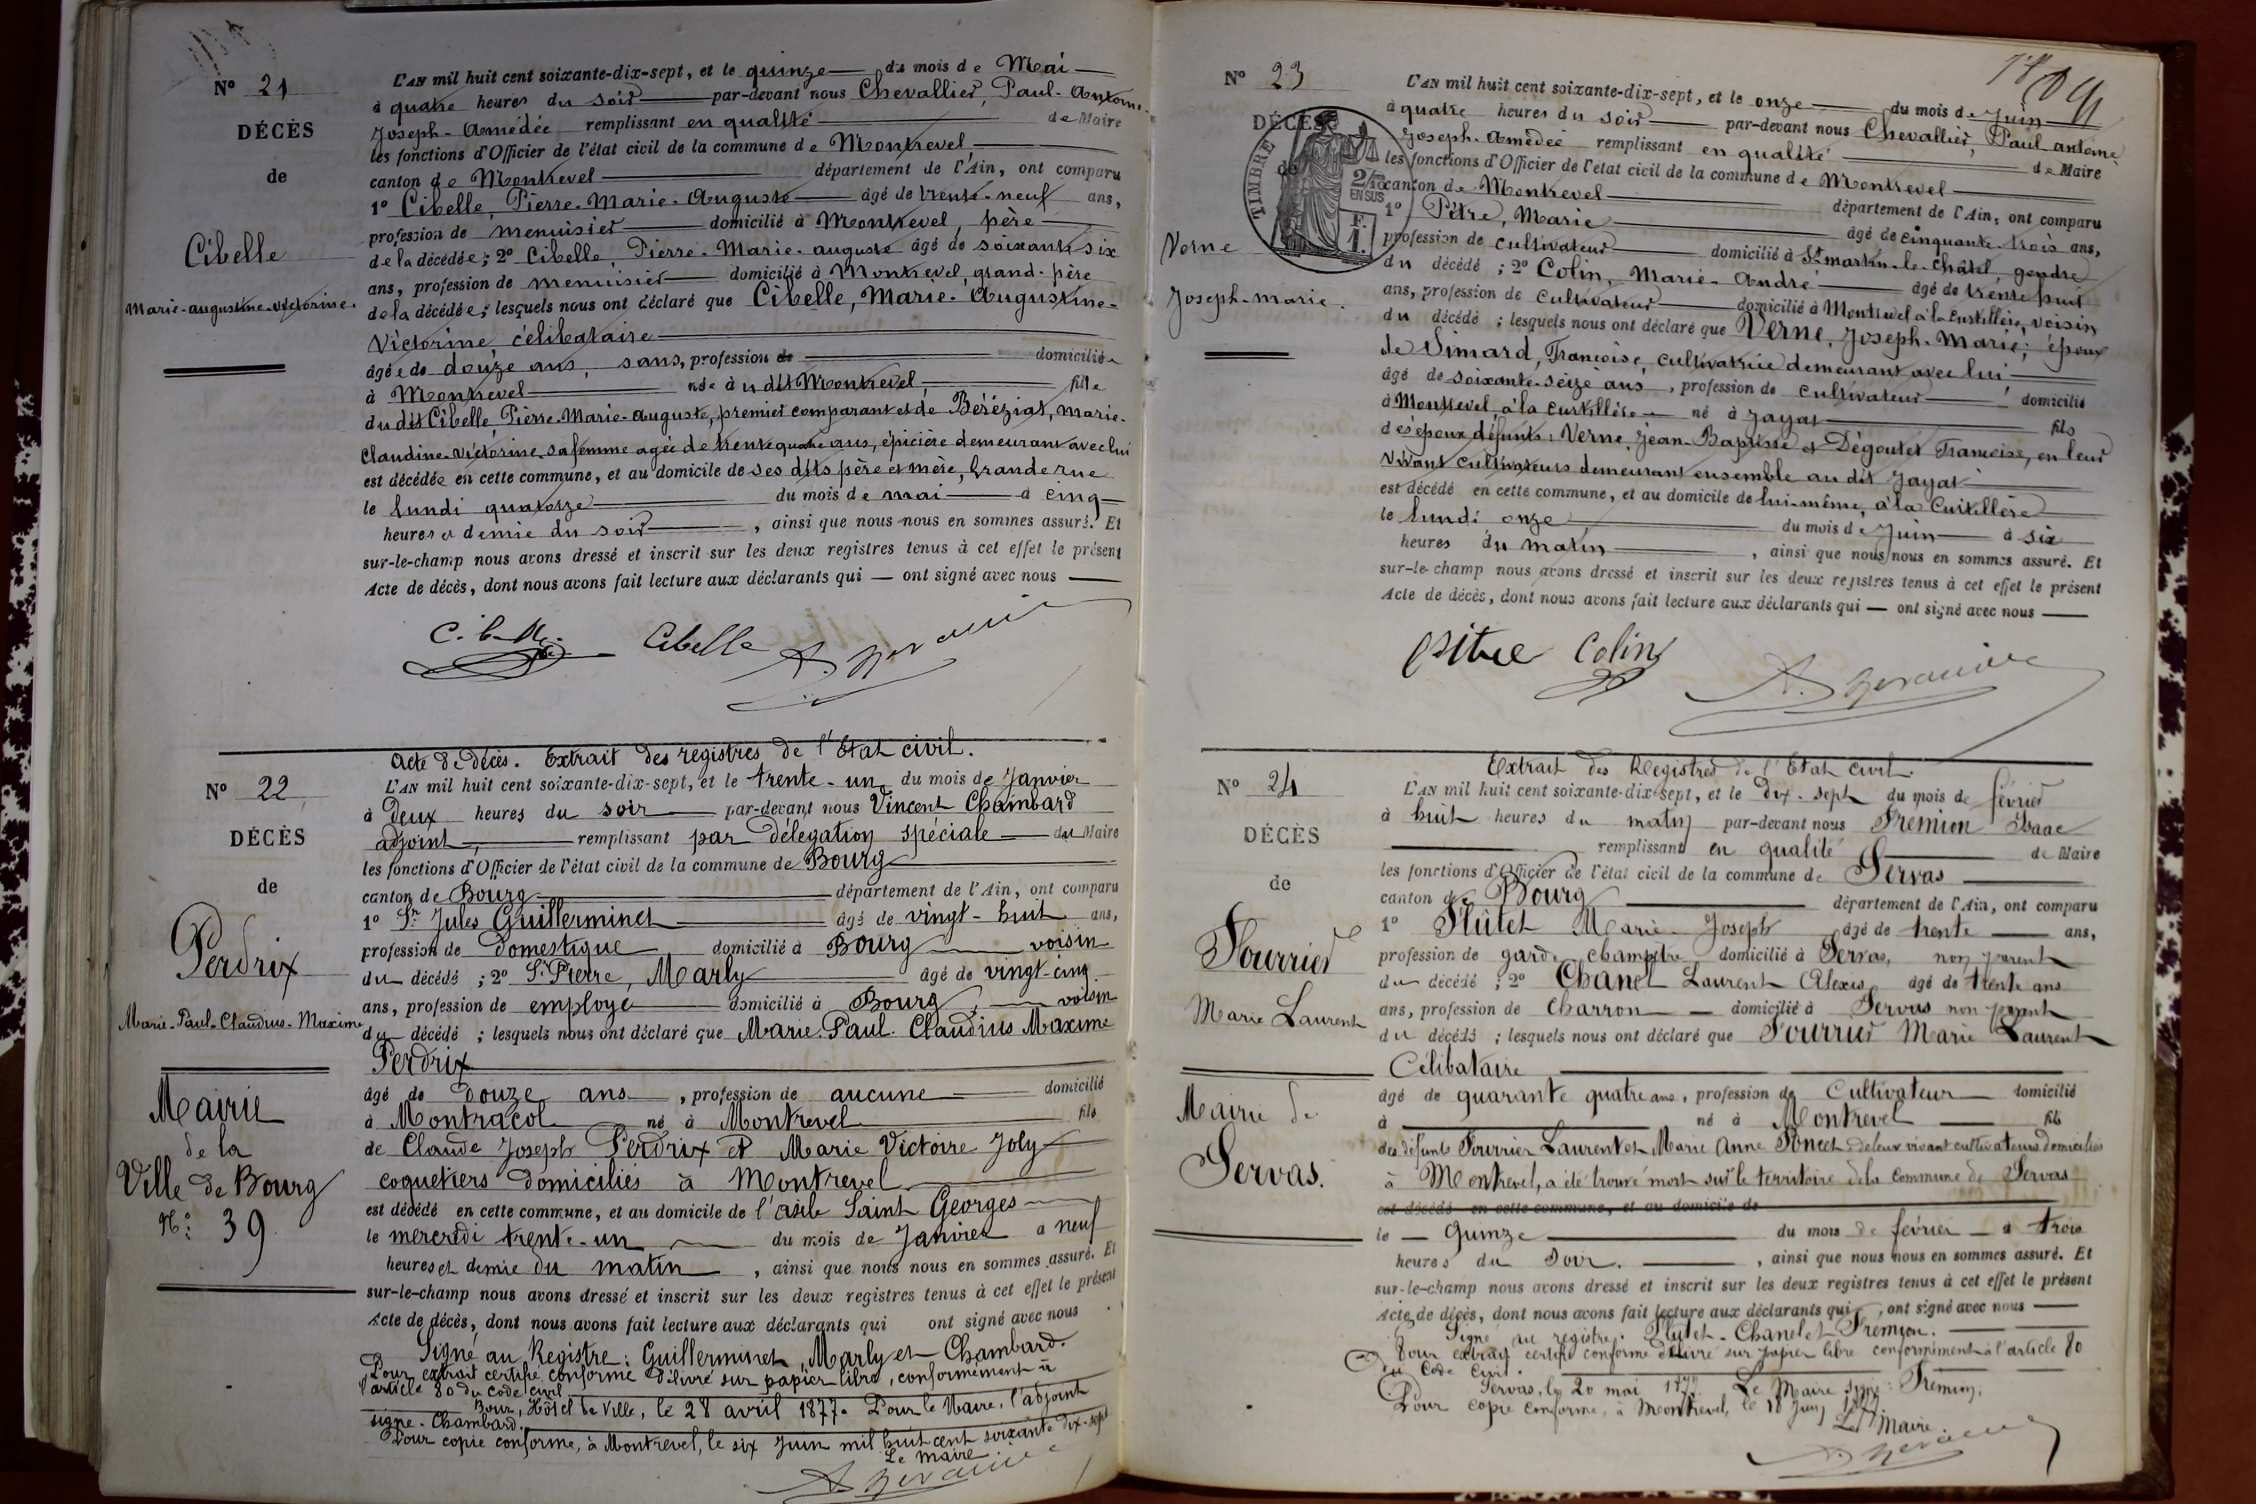 N° 21
DÉCÈS
de
Cibelle
Marie-augustine-victorine.
L'AN mil huit cent soixante-dix-sept, et le quinze du mois de Mai
à quatre heures du soir par-devant nous Chevallier, Paul-Antoine-
Joseph-Amédée remplissant en qualité de Maire
les fonctions d'Officier de l'état civil de la commune de Montrevel
canton de Montrevel département de l'Ain, ont comparu
1° Cibelle, Pierre-Marie-Auguste âgé de trente-neuf ans,
profession de menuisier domicilié à Montrevel, père
de la décédée; 2° Cibelle, Pierre-Marie-auguste âgé de soixante six
ans, profession de menuisier domicilié à Montrevel, grand-père
de la décédée; lesquels nous ont déclaré que Cibelle, Marie-Augustine-
Victorine célibataire
âgée de douze ans, sans, profession de domiciliée
à Montrevel née à u dit Montrevel, fille
du dit Cibelle, Pierre-Marie-auguste, premier comparant et de Béréziat, marie-
Claudine-Victorine, sa femme agée de trente quatre ans, épicière demeurant avec lui
est décédée en cette commune, et au domicile de ses dits père et mère, Grande rue
le lundi quatorze du mois de mai à cinq
heures et demie du soir, ainsi que nous nous en sommes assuré. Et
sur-le-champ nous avons dressé et inscrit sur les deux registres tenus à cet effet le présent
Acte de décès, dont nous avons fait lecture aux déclarants qui — ont signé avec nous
Cibelle
N° 22
DÉCÈS
de
Perdrix
Marie-Paul-Claudius-Maxime
Mairie
de la
Ville de Bourg
N°: 39
Acte de décès. Extrait des registres de l'Etat civil.
L'AN mil huit cent soixante-dix-sept, et le trente-un du mois de Janvier
à Deux heures du soir par-devant nous Vincent Chambard
adjoint, remplissant par délegation spéciale du Maire
les fonctions d'Officier de l'état civil de la commune de Bourg
canton de Bourg département de l'Ain, ont comparu
1° Sr. Jules Guillerminet âgé de vingt-huit ans,
profession de domestique domicilié à Bourg voisin
du décédé; 2° Sr. Pierre, Marly âgé de vingt-cinq
ans, profession de employé domicilié à Bourg, voisin
du décédé; lesquels nous ont déclaré que Marie-Paul-Claudius Maxime
Perdrix
âgé de douze ans, profession de aucune domicilié
à Montracol né à Montrevel fils
de Claude Joseph Perdrix et Marie Victoire Joly
coquetiers domiciliés à Montrevel
est décédé en cette commune, et au domicile de l'asile Saint Georges
le mercredi trente-un du mois de Janvier à neuf
heures et demie du matin, ainsi que nous nous en sommes assuré. Et
sur-le-champ nous avons dressé et inscrit sur les deux registres tenus à cet effet le présent
Acte de décès, dont nous avons fait lecture aux déclarants qui ont signé avec nous
Signé au Registre: Guillerminet, Marly et Chambard.
Pour extrait certifié conforme délivré sur papier libre, conformément à
l'article 80 du Code civil
Bourg, Hôtel de Ville, le 28 avril 1877. Pour le Maire, l'adjoint
signé-Chambard.
Pour copie conforme, à Montrevel, le six Juin mil huit cent soixante dix-sept
Le Maire
N° 23
DÉCÈS
de
Verne
Joseph-marie.
TIMBRE
2/10
EN SUS
F.
1.
L'AN mil huit cent soixante-dix-sept, et le onze du mois de Juin
à quatre heures du soir par-devant nous Chevallier, Paul antoine
Joseph-Amédée remplissant en qualité de Maire
les fonctions d'Officier de l'état civil de la commune de Montrevel
canton de Montrevel département de l'Ain, ont comparu
1° Pitre, Marie âgé de cinquante-trois ans,
profession de cultivateur domicilié à St martin-le-châtel, gendre
du décédé; 2° Colin, Marie-André âgé de trente huit
ans, profession de Cultivateur domicilié à Montrevel à la Curtillère, voisin
du décédé; lesquels nous ont déclaré que Verne, Joseph-Marie; époux
de Simard, Françoise, cultivatrice demeurant avec lui
âgé de soixante-seize ans, profession de cultivateur domicilié
à Montrevel, à la Curtillère né à Jayat fils
des époux défunts: Verne Jean-Baptiste et Dégoutet Francoise, en leur
vivant cultivateurs demeurant ensemble au dit Jayat
est décédé en cette commune, et au domicile de lui-même, à la Curtillère
le lundi onze du mois de Juin à six
heures du matin, ainsi que nous nous en sommes assuré. Et
sur-le-champ nous avons dressé et inscrit sur les deux registres tenus à cet effet le présent
Acte de décès, dont nous avons fait lecture aux déclarants qui — ont signé avec nous
pitre Colin
N° 24
DÉCÈS
de
Fourrier
Marie Laurent
Mairie de
Servas.
Extrait des Registres de l'Etat civil.
L'AN mil huit cent soixante-dix-sept, et le dix-sept du mois de février
à huit heures du matin par-devant nous Frémion Isaac
remplissant en qualité de Maire
les fonctions d'Officier de l'état civil de la commune de Servas
canton de Bourg département de l'Ain, ont comparu
1° Flutet Marie-Joseph âgé de trente ans,
profession de garde champêtre domicilié à Servas, non parent
du décédé; 2° Chanel Laurent Alexis âgé de trente ans
ans, profession de charron domicilié à Servas non parent
du décédé; lesquels nous ont déclaré que Fourrier Marie Laurent
Célibataire
âgé de quarante quatre ans, profession de Cultivateur domicilié
à né à Montrevel fils
des défunts Fourrier Laurent et Marie Anne Poncet de leur vivant cultivateurs domiciliés
à Montrevel, a été trouvé mort sur le territoire de la commune de Servas
est décédé en cette commune, et au domicile de
le Quinze du mois de février à trois
heures du soir, ainsi que nous nous en sommes assuré. Et
sur-le-champ nous avons dressé et inscrit sur les deux registres tenus à cet effet le présent
Acte de décès, dont nous avons fait lecture aux déclarants qui, ont signé avec nous
Signé au registre. Flutet-Chanel et Frémion.
Pour extrait certifié conforme délivré sur papier libre conformément à l'article 80
du Code Civil.
Servas, le 20 mai 1877 Le Maire signé: Frémion.
Pour copie conforme, à Montrevel, le 18 Juin 1877
Le Maire